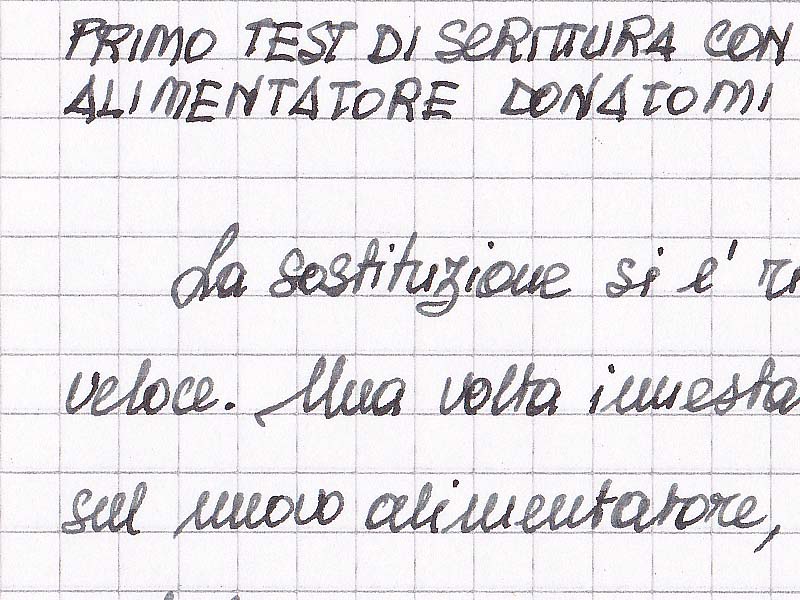 PRIMO TEST DI SCRITTURA CON
ALIMENTATORE DONATOMI
La sostituzione si e' ri
veloce. Una volta innesta
sul nuovo alimentatore,